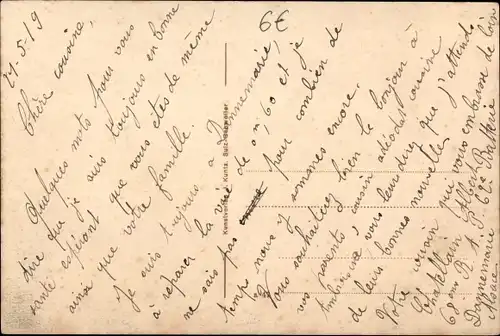 6€
27-5-19
Chère cousine,
Quelques mots pour vous
dire que je suis toujours en bonne
santé espérant que vous êtes de même
ainsi que votre famille.
Je suis toujours à Dannemarie,
à réparer la voie de 0m,60 et je
ne sais pas pour combien de
temps nous y sommes encore.
Vous souhaiterez bien le bonjour à
vos parents, cousin et cousine
Ambroise, vous leur direz que j'attends
de leurs bonnes nouvelles
Votre cousin qui vous embrasse de loin
Chatellain Albert
68ème R.A.P. 62e Batterie
Dannemarie
Alsace
Kunstverlag Kuntz, Sulz-Badweiler